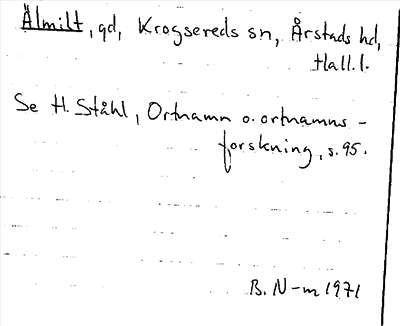 Älmilt, gd, Krogsereds sn, Årstads hd,
Hall. l.
Se H. Ståhl, Ortnamn o. ortnamns-
forskning, s. 95.
B. N-m 1971